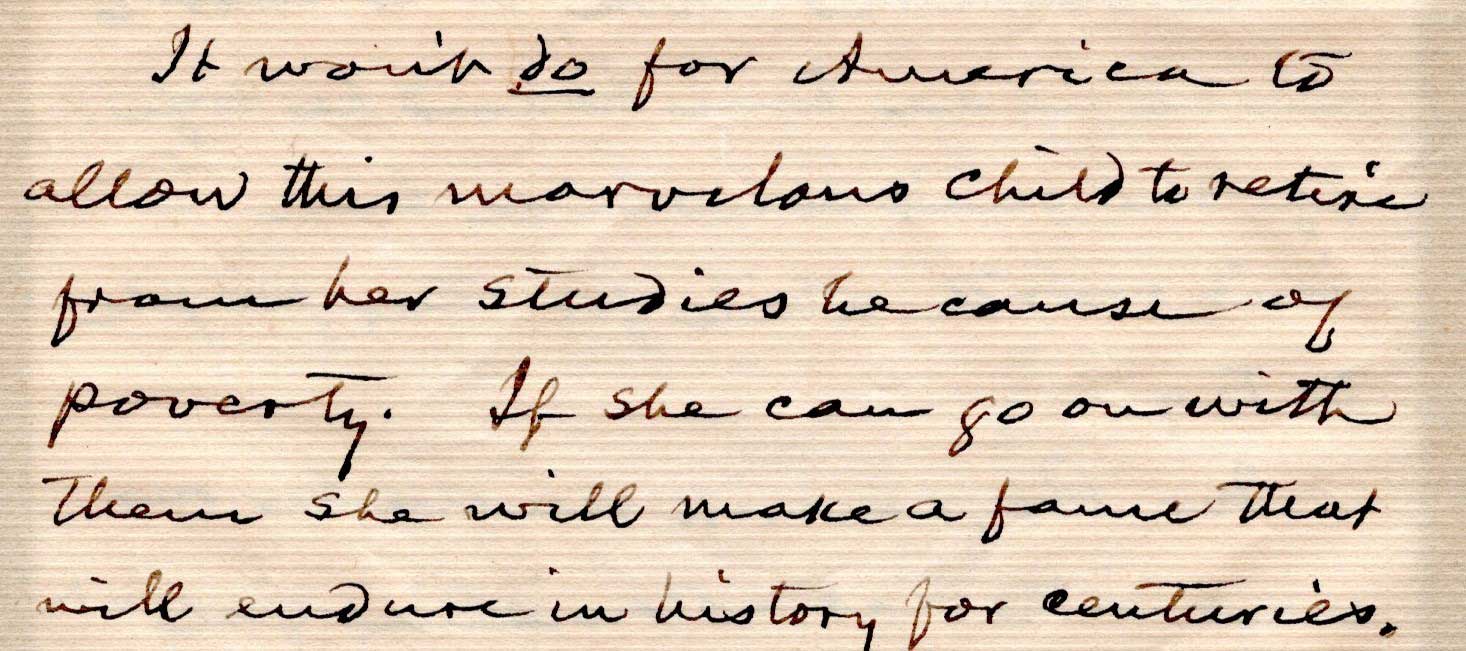 It won't do for America to
allow this marvelous child to retire
from her studies because of
poverty. If she can go on with
them she will make a fame that
will endure in history for centuries.